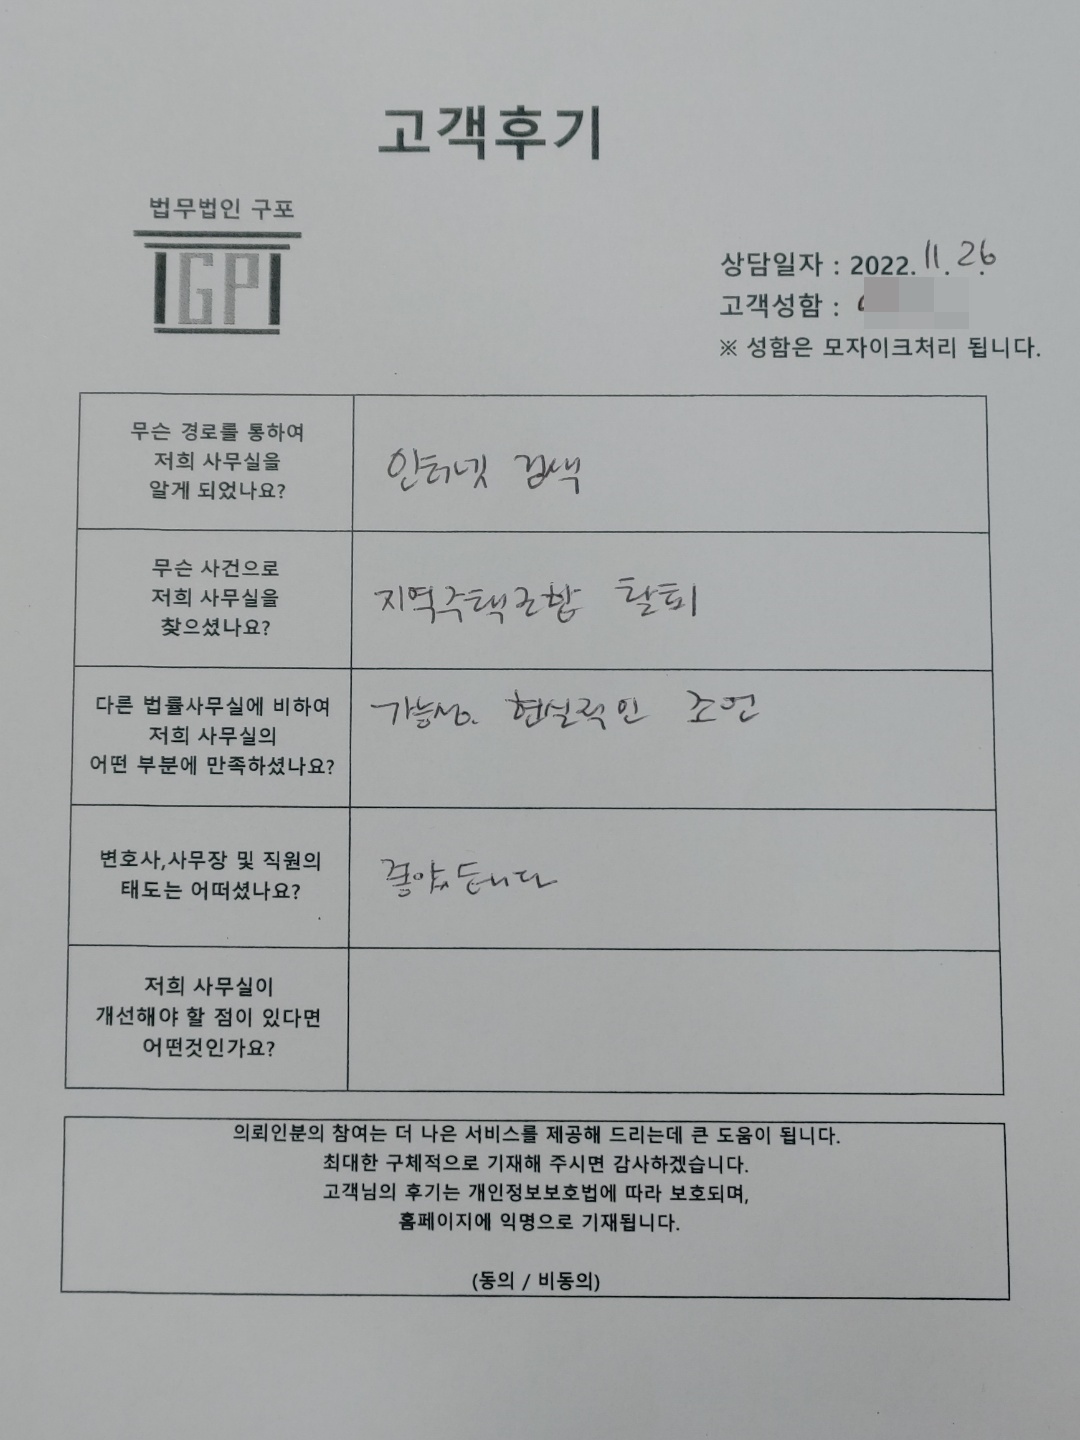 고객후기
법무법인 구포
GP
상담일자 : 2022. 11. 26.
고객성함 :
※ 성함은 모자이크처리 됩니다.
무슨 경로를 통하여
저희 사무실을
알게 되었나요?
인터넷 검색
무슨 사건으로
저희 사무실을
찾으셨나요?
지역주택조합 탈퇴
다른 법률사무실에 비하여
저희 사무실의
어떤 부분에 만족하셨나요?
가능성. 현실적인 조언
변호사,사무장 및 직원의
태도는 어떠셨나요?
좋았습니다
저희 사무실이
개선해야 할 점이 있다면
어떤것인가요?
의뢰인분의 참여는 더 나은 서비스를 제공해 드리는데 큰 도움이 됩니다.
최대한 구체적으로 기재해 주시면 감사하겠습니다.
고객님의 후기는 개인정보보호법에 따라 보호되며,
홈페이지에 익명으로 기재됩니다.
(동의 / 비동의)